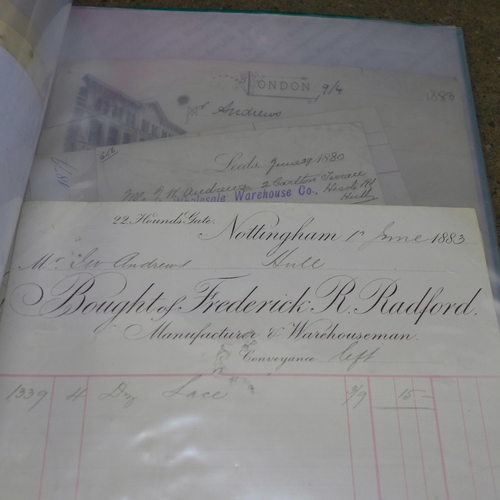 LONDON 9/4
1883
Andrews
Leeds June 1880
Mr. G. H. Andrews 2 Carlton Terrace
Wholesale Warehouse Co.,
Hull
22, Hounds' Gate.
Nottingham 1st June 1883
Mr. Geo Andrews Hull
Bought of Frederick R. Radford.
Manufacturer & Warehouseman.
Conveyance left
1339 4 Dz Lace 3/9 15–